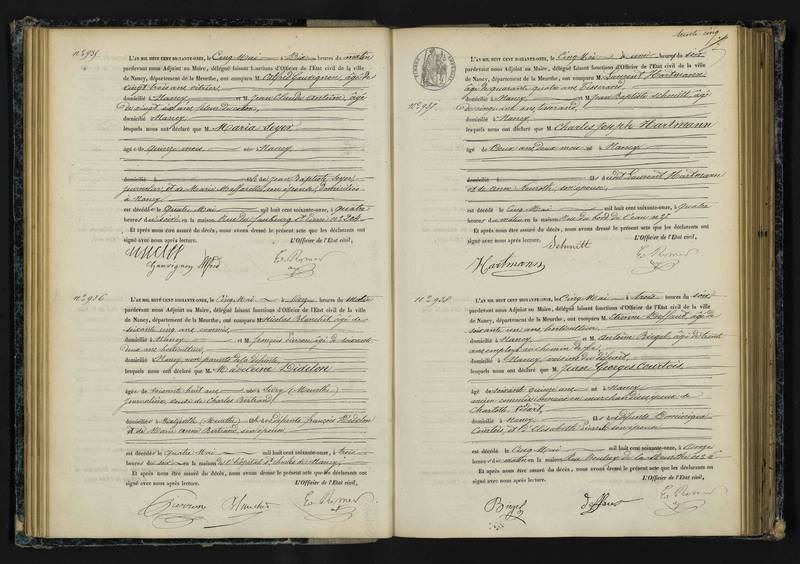 N.° 935
L'AN MIL HUIT CENT SOIXANTE-ONZE, le Cinq Mai à Dix heures du matin
pardevant nous Adjoint au Maire, délégué faisant fonctions d'Officier de l'Etat civil de la ville
de Nancy, département de la Meurthe, ont comparu M. Alfred Gauvignon, âgé de
vingt trois ans vitrier,
domicilié à Nancy et M. Jean Claude Antoine, âgé
de vingt six ans
domicilié Nancy
lesquels nous ont déclaré que M. Maria Seyer
âgée de quinze mois née Nancy
Jean Baptiste Seyer
journalier, et de Marie son épouse, domiciliés
à Nancy
est décédée le Quatre Mai mil huit cent soixante-onze, à quatre
heures du soir en la maison Rue du faubourg St Pierre n.° 204
Et après nous être assuré du décès, nous avons dressé le présent acte que les déclarants ont
signé avec nous après lecture. L'Officier de l'Etat civil,
Gauvignon Alfred
N.° 936
L'AN MIL HUIT CENT SOIXANTE-ONZE, le Cinq Mai à heures du matin
pardevant nous Adjoint au Maire, délégué faisant fonctions d'Officier de l'Etat civil de la ville
de Nancy, département de la Meurthe, ont comparu M. Nicolas Blanchet âgé de
soixante cinq ans commis,
domicilié à Nancy et M. françois Pierron âgé de soixante
ans horticulteur,
domicilié Nancy non parents de la défunte
lesquels nous ont déclaré que M. Madeleine Didelon
âgée de soixante huit ans née (Meurthe)
journalière, veuve de Charles Bertrand,
domiciliée à (Meurthe) défunts françois Didelon
et de Marie Anne Bertrand, son épouse
est décédée le quatre Mai mil huit cent soixante-onze, à trois
heures du soir en la maison de l'hôpital St Charles de Nancy
Et après nous être assuré du décès, nous avons dressé le présent acte que les déclarants ont
signé avec nous après lecture. L'Officier de l'Etat civil,
Pierron
N.° 937
L'AN MIL HUIT CENT SOIXANTE-ONZE, le Cinq Mai à une heures du soir
pardevant nous Adjoint au Maire, délégué faisant fonctions d'Officier de l'Etat civil de la ville
de Nancy, département de la Meurthe, ont comparu M. Laurent Hartmann
âgé de quarante quatre ans tisserand,
domicilié à Nancy et M. Jean Baptiste Schmitt âgé
de cinquante ans, tisserand,
domicilié à Nancy
lesquels nous ont déclaré que M. Charles Joseph Hartmann
âgé de Deux ans deux mois né à Nancy
dudit Laurent Hartmann
et de Anne son épouse,
est décédé le Cinq Mai mil huit cent soixante-onze, à quatre
heures du matin en la maison Rue du bord de l'eau n.°
Et après nous être assuré du décès, nous avons dressé le présent acte que les déclarants ont
signé avec nous après lecture. L'Officier de l'Etat civil,
Schmitt
Hartmann
N.° 938
L'AN MIL HUIT CENT SOIXANTE-ONZE, le Cinq Mai à trois heures du soir
pardevant nous Adjoint au Maire, délégué faisant fonctions d'Officier de l'Etat civil de la ville
de Nancy, département de la Meurthe, ont comparu M. Etienne âgé de
soixante ans horticulteur
domicilié à Nancy et M. Antoine Birgel âgé de trente
ans employé au chemin de fer
domicilié à Nancy voisins du défunt
lesquels nous ont déclaré que M. Jean Georges Courtois
âgé de soixante quinze ans né à Nancy
ancien commissionnaire en marchandises, veuf de
Charlotte
domicilié à Nancy défunts Dominique
Courtois, et d'Elisabeth son épouse
est décédé le Cinq Mai mil huit cent soixante-onze, à onze
heures du matin en la maison Rue de la Meurthe n.° 6
Et après nous être assuré du décès, nous avons dressé le présent acte que les déclarants ont
signé avec nous après lecture. L'Officier de l'Etat civil,
Birgel